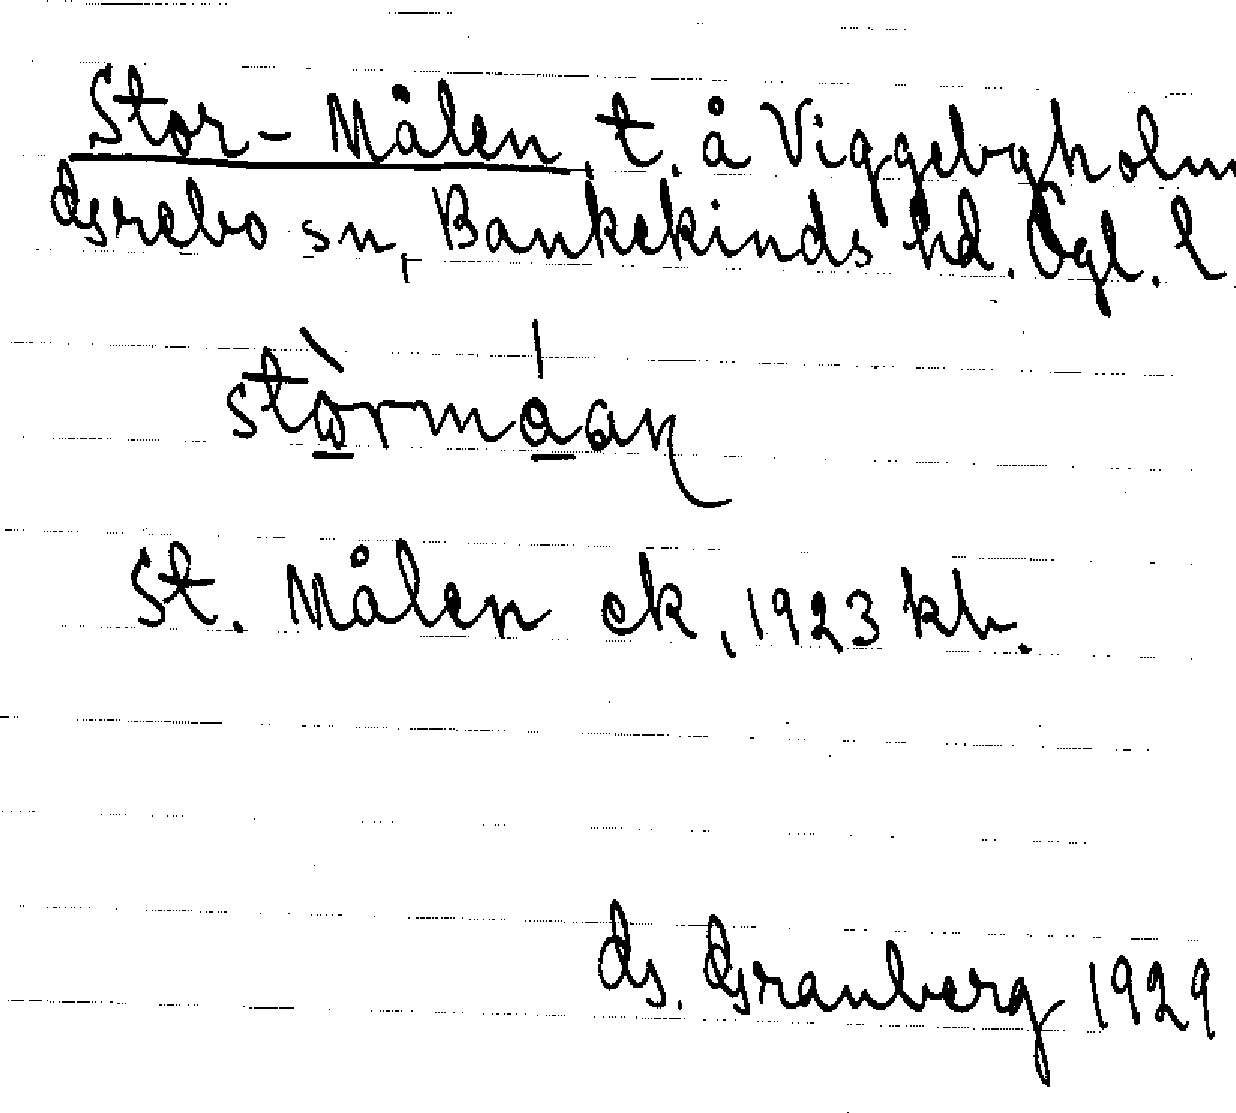 Stor-Målen, t. å Viggebyholm
Grebo sn, Bankekinds hd. Ögl. l
stòrmáan
St. Målen ek, 1923 kb.
G. Granberg 1929